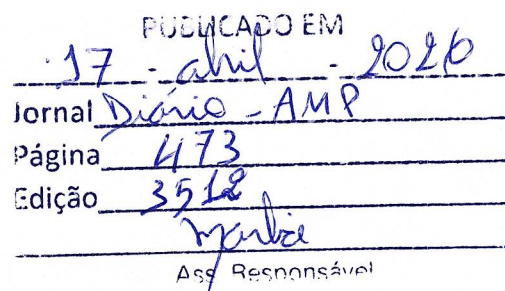 PUBLICADO EM
17 - abril - 2026
Jornal Diário - AMP
Página 473
Edição 3512
Ass Responsável